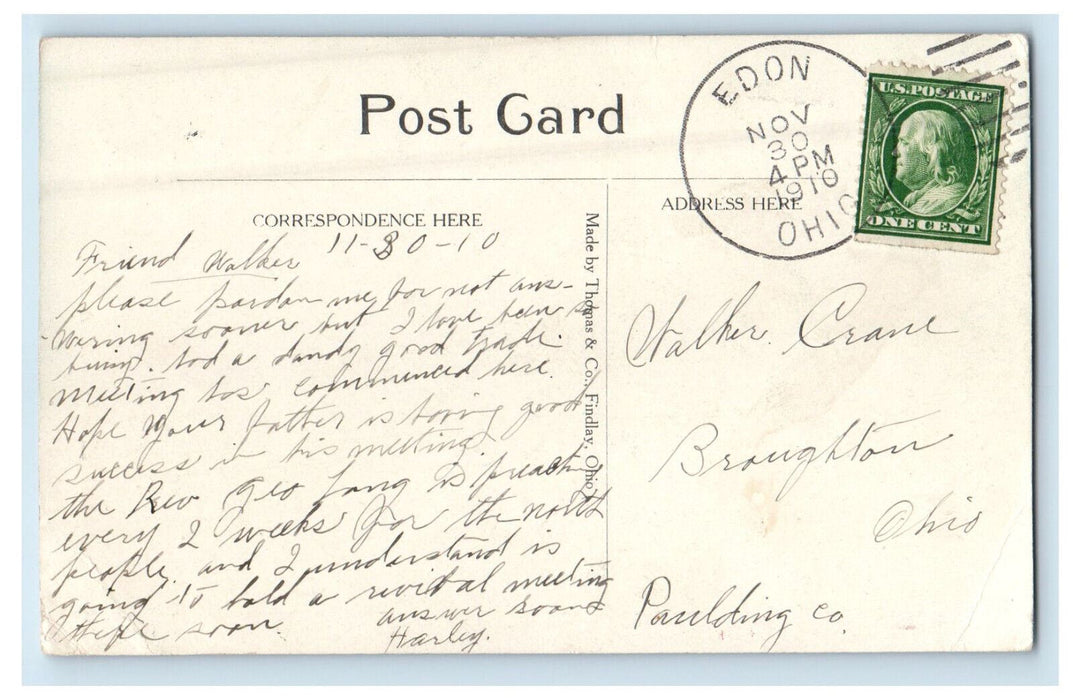 Post Card
EDON
NOV
30
4 PM
1910
OHIO
U.S. POSTAGE
ONE CENT
CORRESPONDENCE HERE
ADDRESS HERE
11-30-10
Friend Walker
please pardon me for not ans-
wering sooner but I have been
busy. had a dandy good trade.
Meeting has commenced here.
Hope your father is having good
success in his meeting.
the Rev Geo Lang is preaching
every 2 weeks for the north
people, and I understand is
going to hold a revival meeting
there soon.
answer soon
Harley.
Made by Thomas & Co., Findlay, Ohio
Walker Crane
Broughton
Ohio
Paulding co.